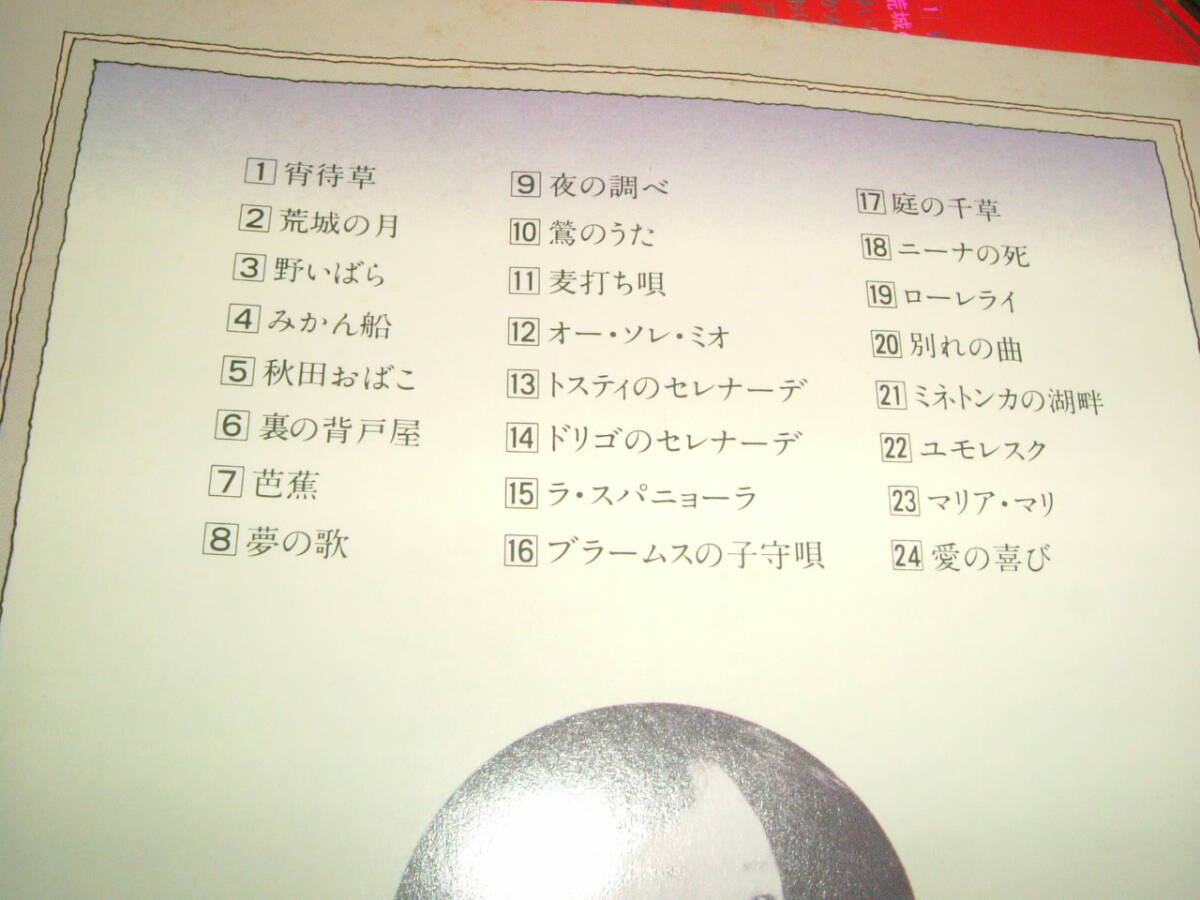 1 宵待草
2 荒城の月
3 野いばら
4 みかん船
5 秋田おばこ
6 裏の背戸屋
7 芭蕉
8 夢の歌
9 夜の調べ
10 鶯のうた
11 麦打ち唄
12 オー・ソレ・ミオ
13 トスティのセレナーデ
14 ドリゴのセレナーデ
15 ラ・スパニョーラ
16 ブラームスの子守唄
17 庭の千草
18 ニーナの死
19 ローレライ
20 別れの曲
21 ミネトンカの湖畔
22 ユモレスク
23 マリア・マリ
24 愛の喜び
荒城